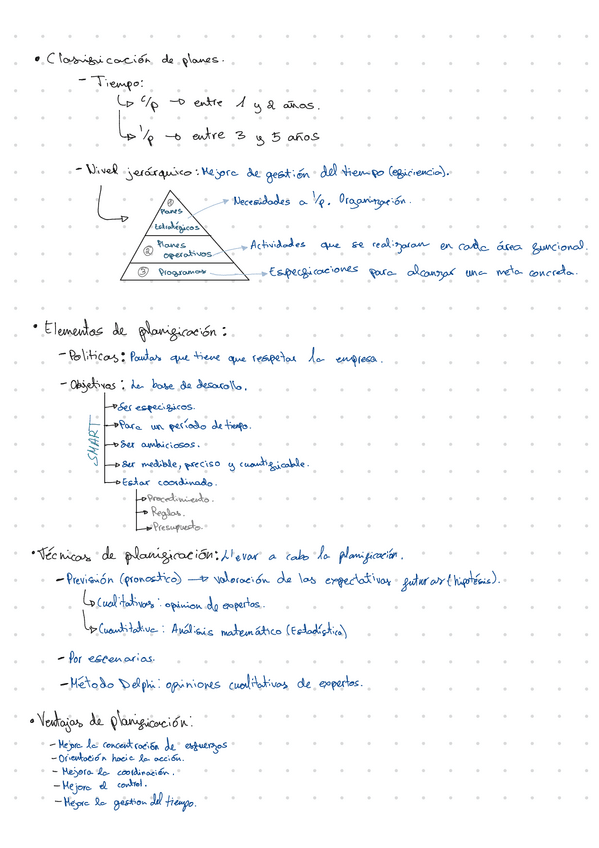 • Clasificación de planes.
- Tiempo:
↳ c/p → entre 1 y 2 años.
↳ l/p → entre 3 y 5 años
- Nivel jerárquico: Mejora de gestión del tiempo (eficiencia).
① Planes estratégicos → Necesidades a l/p. Organización.
② Planes operativos → Actividades que se realizaran en cada área funcional.
③ Programas → Especificaciones para alcanzar una meta concreta.
• Elementos de planificación:
- Políticas: Pautas que tiene que respetar la empresa.
- Objetivos: La base de desarollo.
SMART
→ Ser específicos.
→ Para un período de tiempo.
→ Ser ambiciosos.
→ Ser medible, preciso y cuantificable.
→ Estar coordinado.
→ Procedimiento.
→ Reglas.
→ Presupuesto.
• Técnicas de planificación: Llevar a cabo la planificación.
- Previsión (pronostico) → valoración de las expectativas futuras (hipotésis).
↳ Cualitativas: opinion de expertos.
↳ Cuantitativa: Análisis matemático (Estadística)
- Por escenarios.
- Método Delphi: opiniones cualitativas de expertos.
• Ventajas de planificación:
- Mejora la concentración de esfuerzos
- Orientación hacia la acción.
- Mejora la coordinación.
- Mejora el control.
- Mejora la gestion del tiempo.